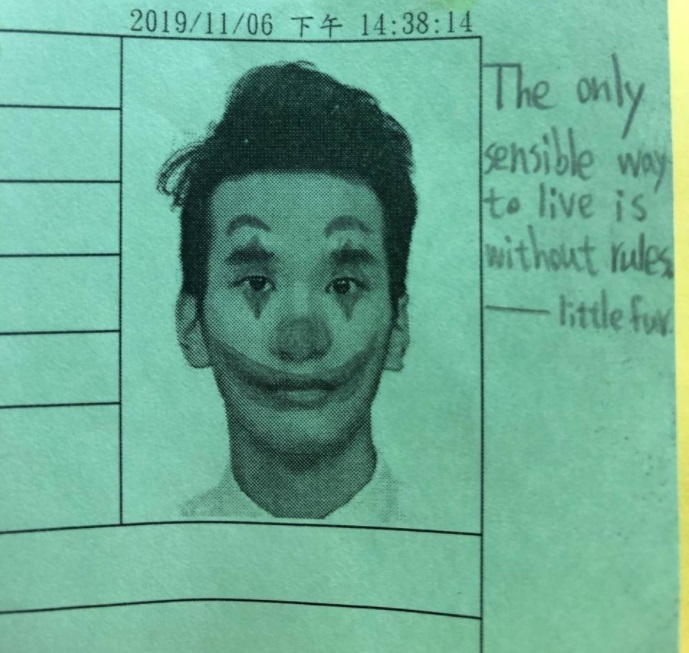 2019/11/06 下午 14:38:14
The only
sensible way
to live is
without rules.
—— little fur.